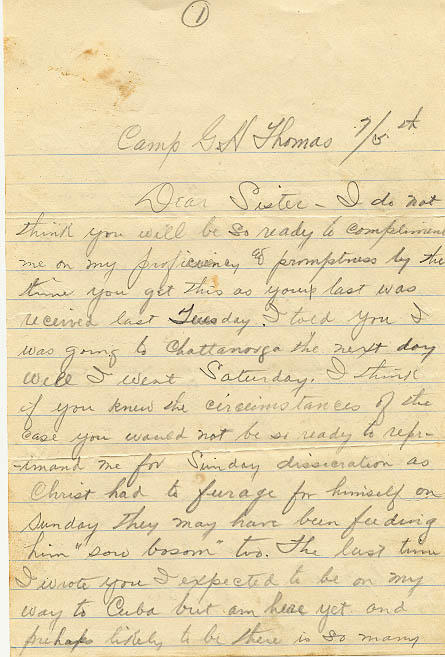 1
Camp G H Thomas 7/5th
Dear Sister - I do not
think you will be so ready to compliment
me on my proficiency & promptness by the
time you get this as your last was
received last Tuesday. I told you I
was going to Chattanooga the next day
well I went Saturday. I think
if you knew the circumstances of the
case you would not be so ready to repr-
-imand me for Sunday dissicration as
Christ had to furage for himself on
Sunday they may have been feeding
him "sow bosom" too. The last time
I wrote you I expected to be on my
way to Cuba but am here yet and
prehaps likely to be there is so many